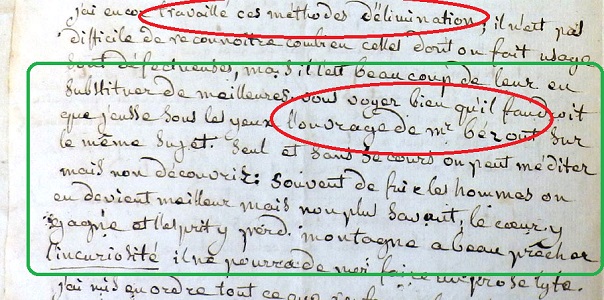 j'ai encore travaillé ces méthodes d'élimination, il n'est pas
difficile de reconnoître combien celles dont on fait usage
sont défectueuses, mais il l'est beaucoup de leur en
substituer de meilleures, vous voyez bien qu'il faudroit
que j'eusse sous les yeux l'ouvrage de mr bezout sur
le même sujet. Seul et sans secours on peut méditer
mais non découvrir: souvent de fuir les hommes on
en devient meilleur mais non plus savant, le cœur y
gagne et l'esprit y perd. montagne a beau prêcher
l'incuriosité il ne pourra de moi faire un prosélyte.
j'ai mis en ordre tout ce que